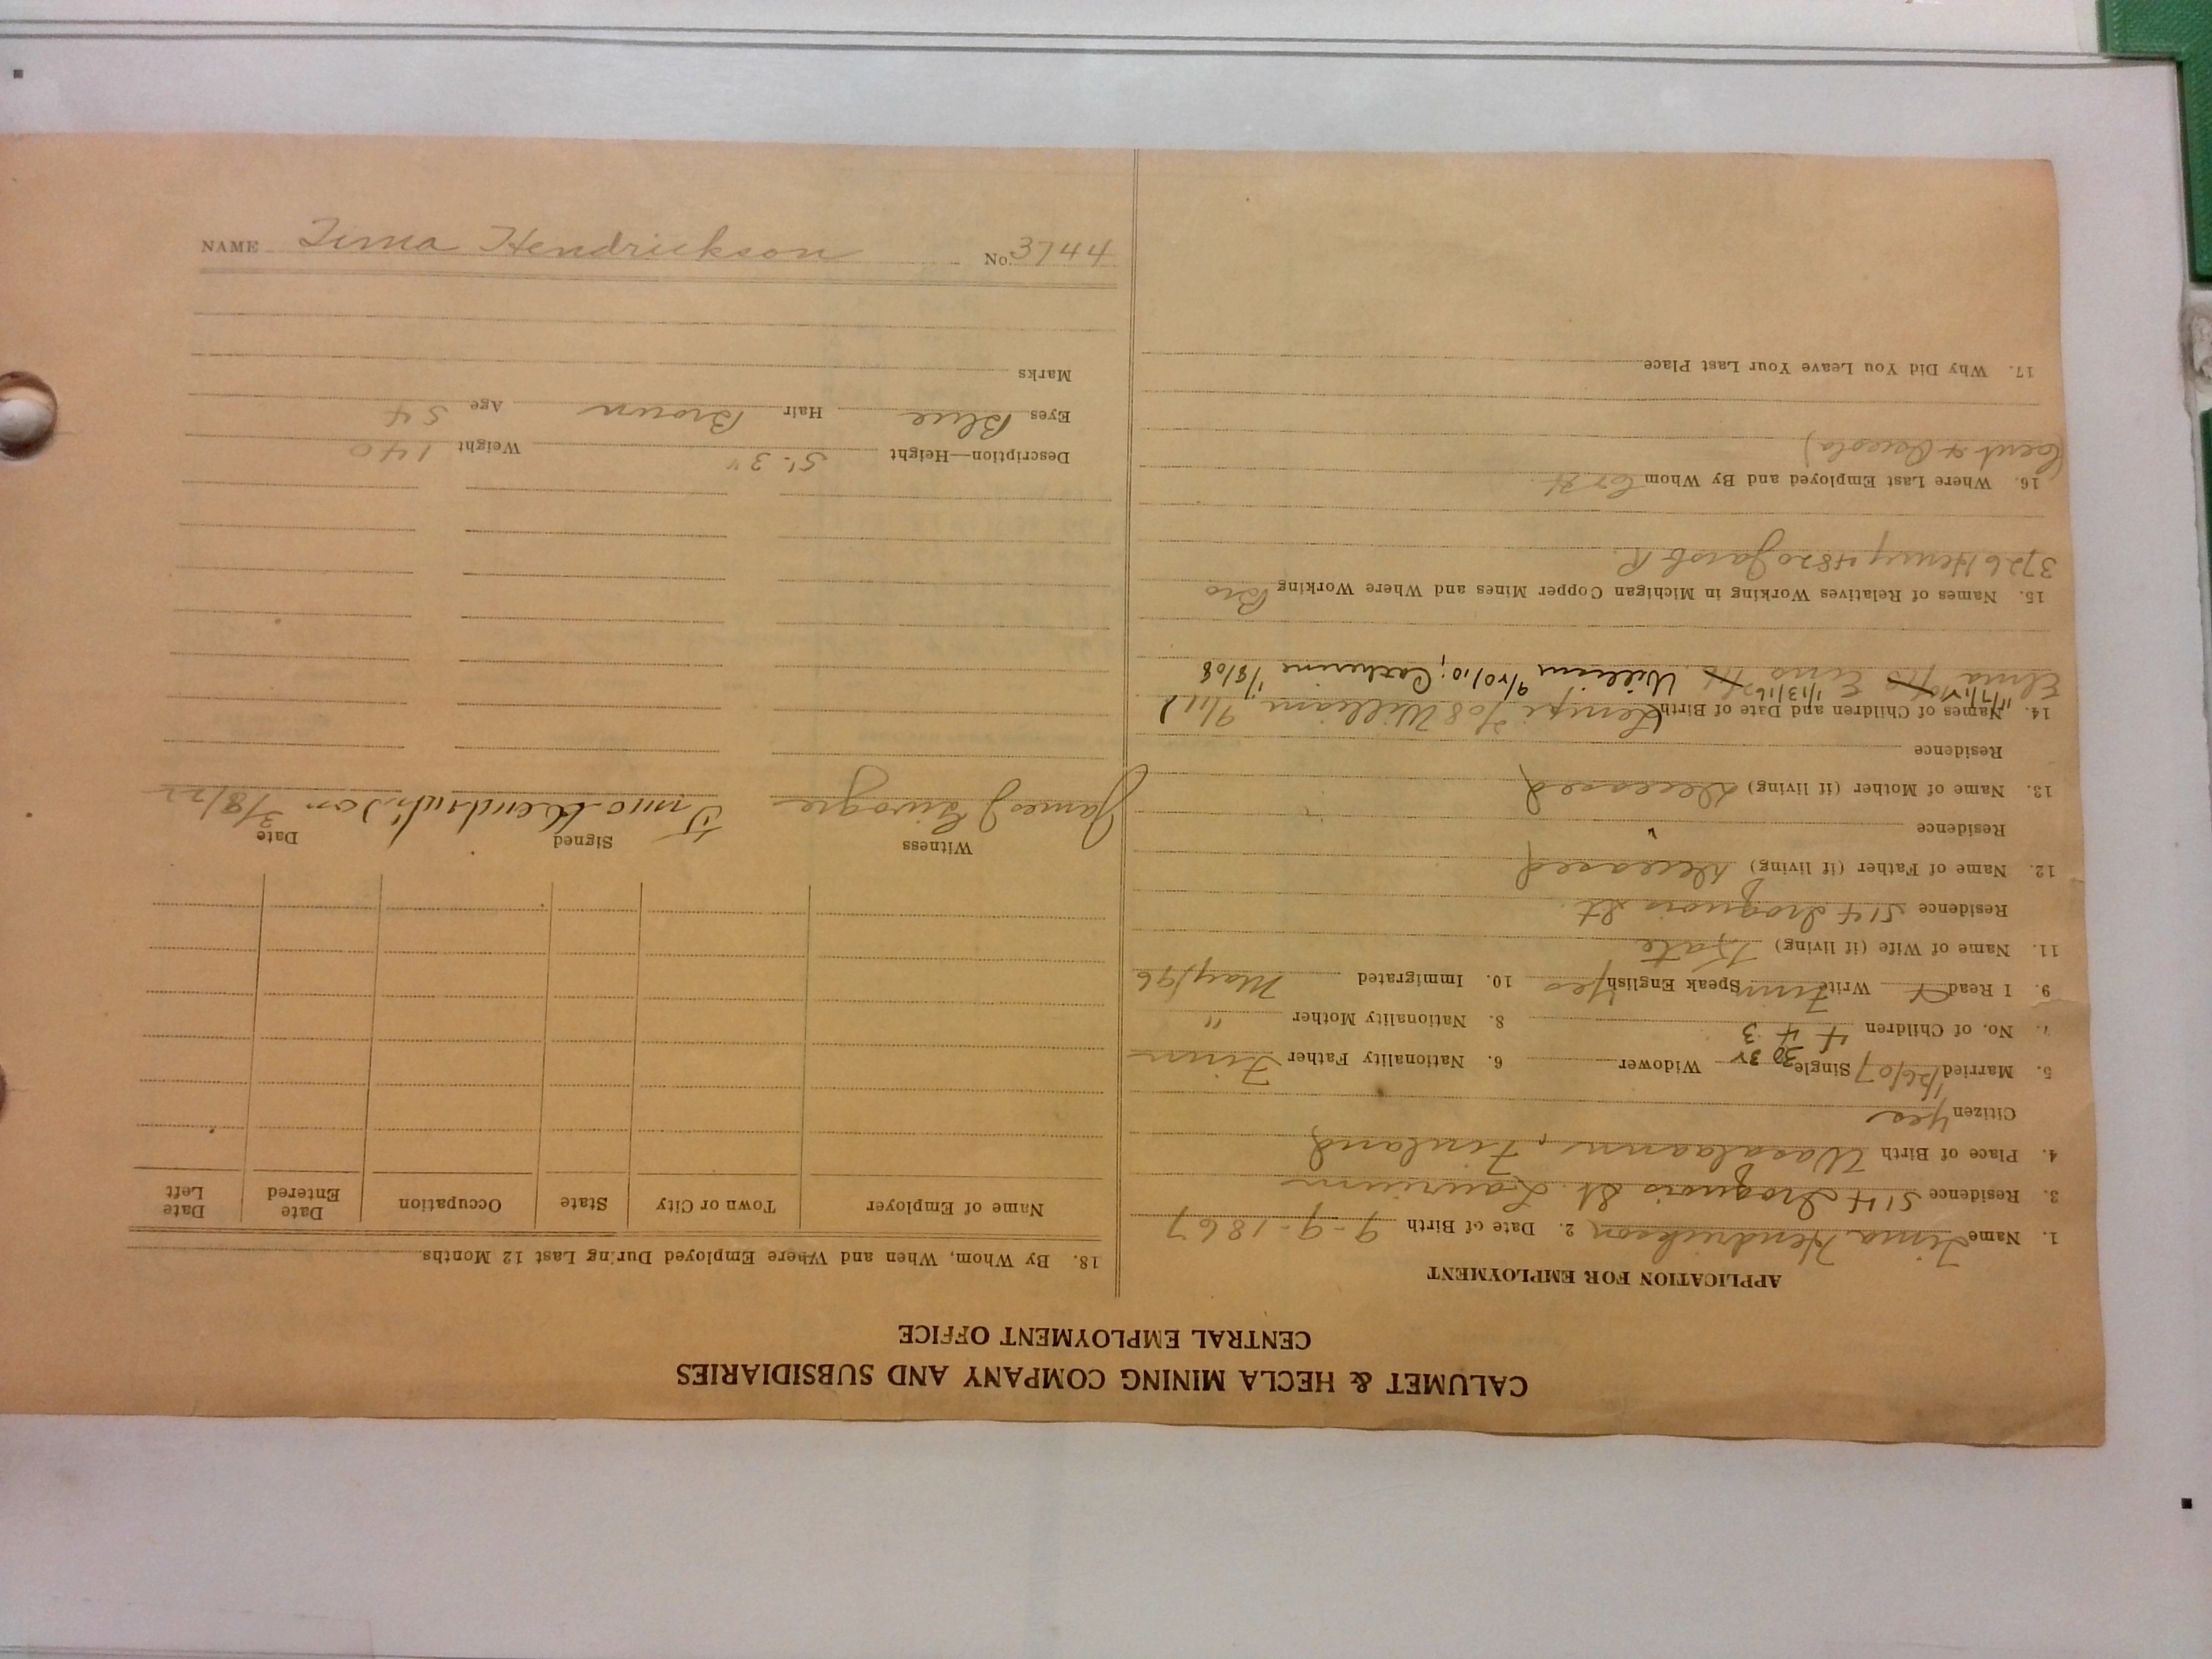 CALUMET & HECLA MINING COMPANY AND SUBSIDIARIES
CENTRAL EMPLOYMENT OFFICE
APPLICATION FOR EMPLOYMENT
1. Name Hendrickson 2. Date of Birth 9-9-1867
3. Residence 514 Iroquois St. Laurium
4. Place of Birth Wasalaani, Finland
Citizen Yes
5. Married 1/26/07 Single Widower 6. Nationality Father Finn
7. No. of Children 4 4 3 8. Nationality Mother "
9. I Read Write Finn Speak English Yes 10. Immigrated May/96
11. Name of Wife (if living) Kate
Residence 514 Iroquois St.
12. Name of Father (if living) Deceased
Residence "
13. Name of Mother (if living) Deceased
Residence
14. Names of Children and Date of Birth Lempi 7/08 William 9/11
Elma Eino 1/13/16 William 9/20/10; Catherine 1/8/08
15. Names of Relatives Working in Michigan Copper Mines and Where Working Bro
3726 Henry 4820 Jacob R.
16. Where Last Employed and By Whom C & H.
(Cent & Osceola)
17. Why Did You Leave Your Last Place
18. By Whom, When and Where Employed During Last 12 Months
Name of Employer Town or City State Occupation Date Entered Date Left
Witness Signed Date
James J Hendrickson 3/8/22
Description—Height 5'-3" Weight 140
Eyes Blue Hair Brown Age 54
Marks
NAME Hendrickson No. 3744